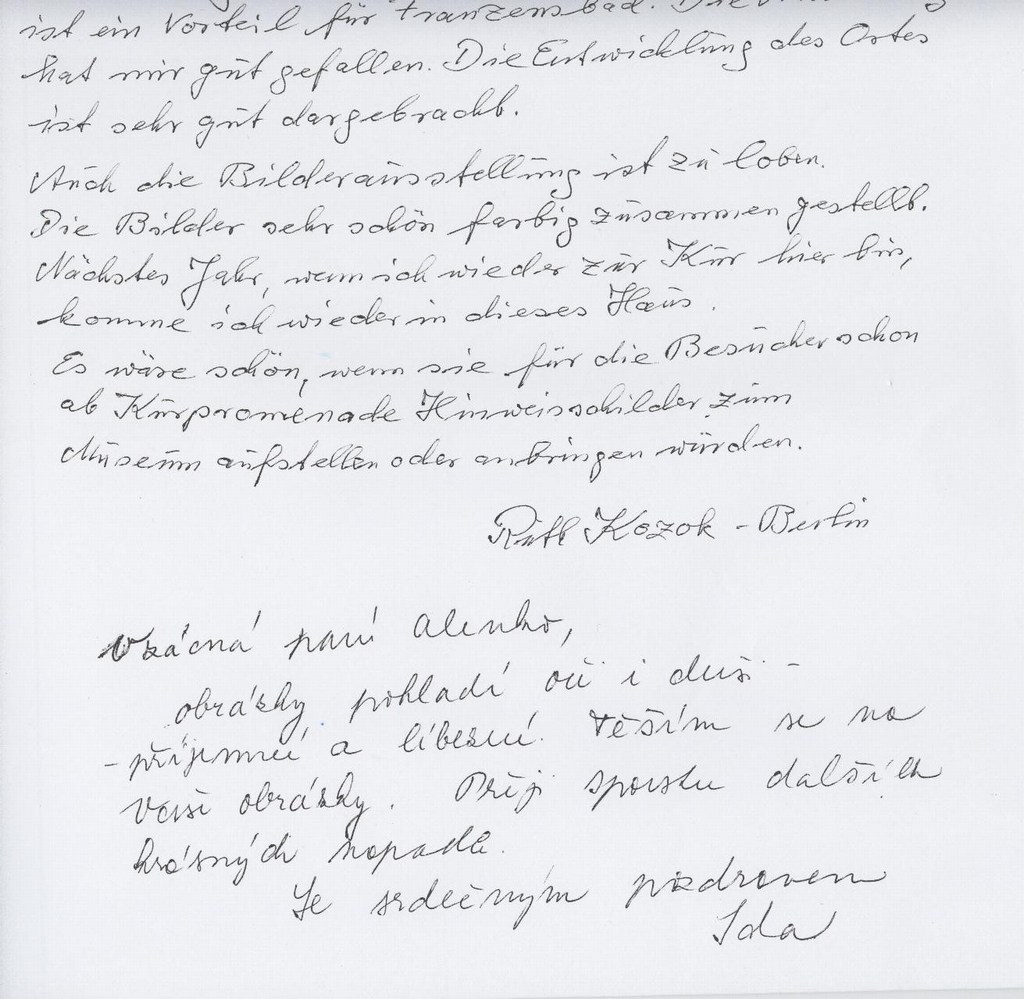 ist ein Vorteil für Franzensbad. Die
hat mir gut gefallen. Die Entwicklung des Ortes
ist sehr gut dargebracht.
Auch die Bilderausstellung ist zu loben.
Die Bilder sehr schön farbig zusammen gestellt.
Nächstes Jahr, wenn ich wieder zur Kur hier bin,
komme ich wieder in dieses Haus.
Es wäre schön, wenn sie für die Besucher schon
ab Kurpromenade Hinweisschilder zum
Museum aufstellen oder anbringen würden.
Ruth Kozok - Berlin
Vzácná paní Alenko,
obrázky pohladí oči i duši -
- příjemné a líbezné. Těším se na
Vaše obrázky. Přeji spoustu dalších
krásných nápadů.
Se srdečným pozdravem
Ida